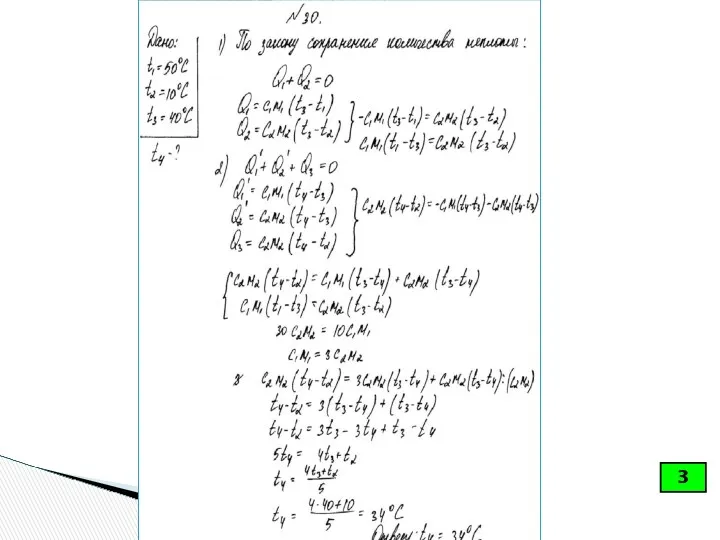 №30.
Дано:
t₁=50°C
t₂=10°C
t₃=40°C
t₄-?
1) По закону сохранения количества теплоты:
Q₁+Q₂=0
Q₁=c₁м₁(t₃-t₁)
Q₂=c₂м₂(t₃-t₂)
-c₁м₁(t₃-t₁)=c₂м₂(t₃-t₂)
c₁м₁(t₁-t₃)=c₂м₂(t₃-t₂)
2) Q₁'+Q₂'+Q₃=0
Q₁'=c₁м₁(t₄-t₃)
Q₂'=c₂м₂(t₄-t₃)
Q₃=c₂м₂(t₄-t₂)
c₂м₂(t₄-t₂)=-c₁м₁(t₄-t₃)-c₂м₂(t₄-t₃)
c₂м₂(t₄-t₂)=c₁м₁(t₃-t₄)+c₂м₂(t₃-t₄)
c₁м₁(t₁-t₃)=c₂м₂(t₃-t₂)
30c₂м₂=10c₁м₁
c₁м₁=3c₂м₂
c₂м₂(t₄-t₂)=3c₂м₂(t₃-t₄)+c₂м₂(t₃-t₄):(c₂м₂)
t₄-t₂=3(t₃-t₄)+(t₃-t₄)
t₄-t₂=3t₃-3t₄+t₃-t₄
5t₄=4t₃+t₂
t₄=4t₃+t₂/5
t₄=4·40+10/5=34°C
Ответ: t₄=34°C
3